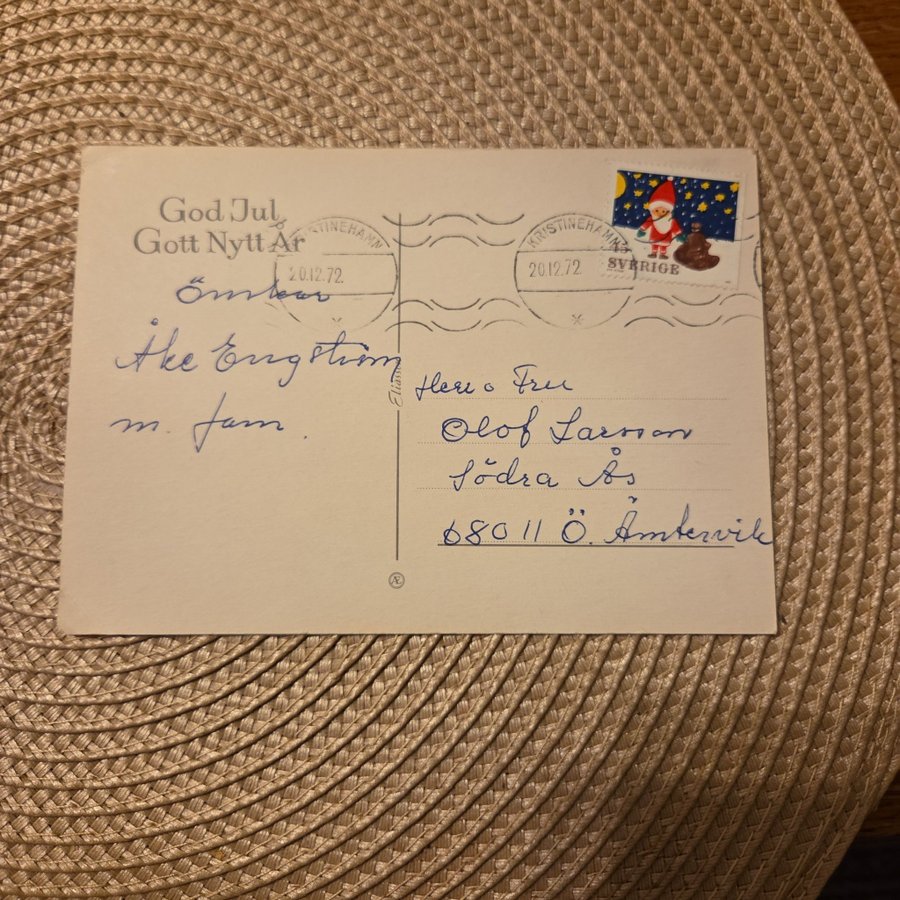 God Jul
Gott Nytt År
önskar
Åke Engström
m. fam.
KRISTINEHAMN
20.12.72
KRISTINEHAMN
20.12.72
SVERIGE
Eliasson
Herr o Fru
Olof Larsson
Södra Ås
68011 Ö. Ämtervik
Æ